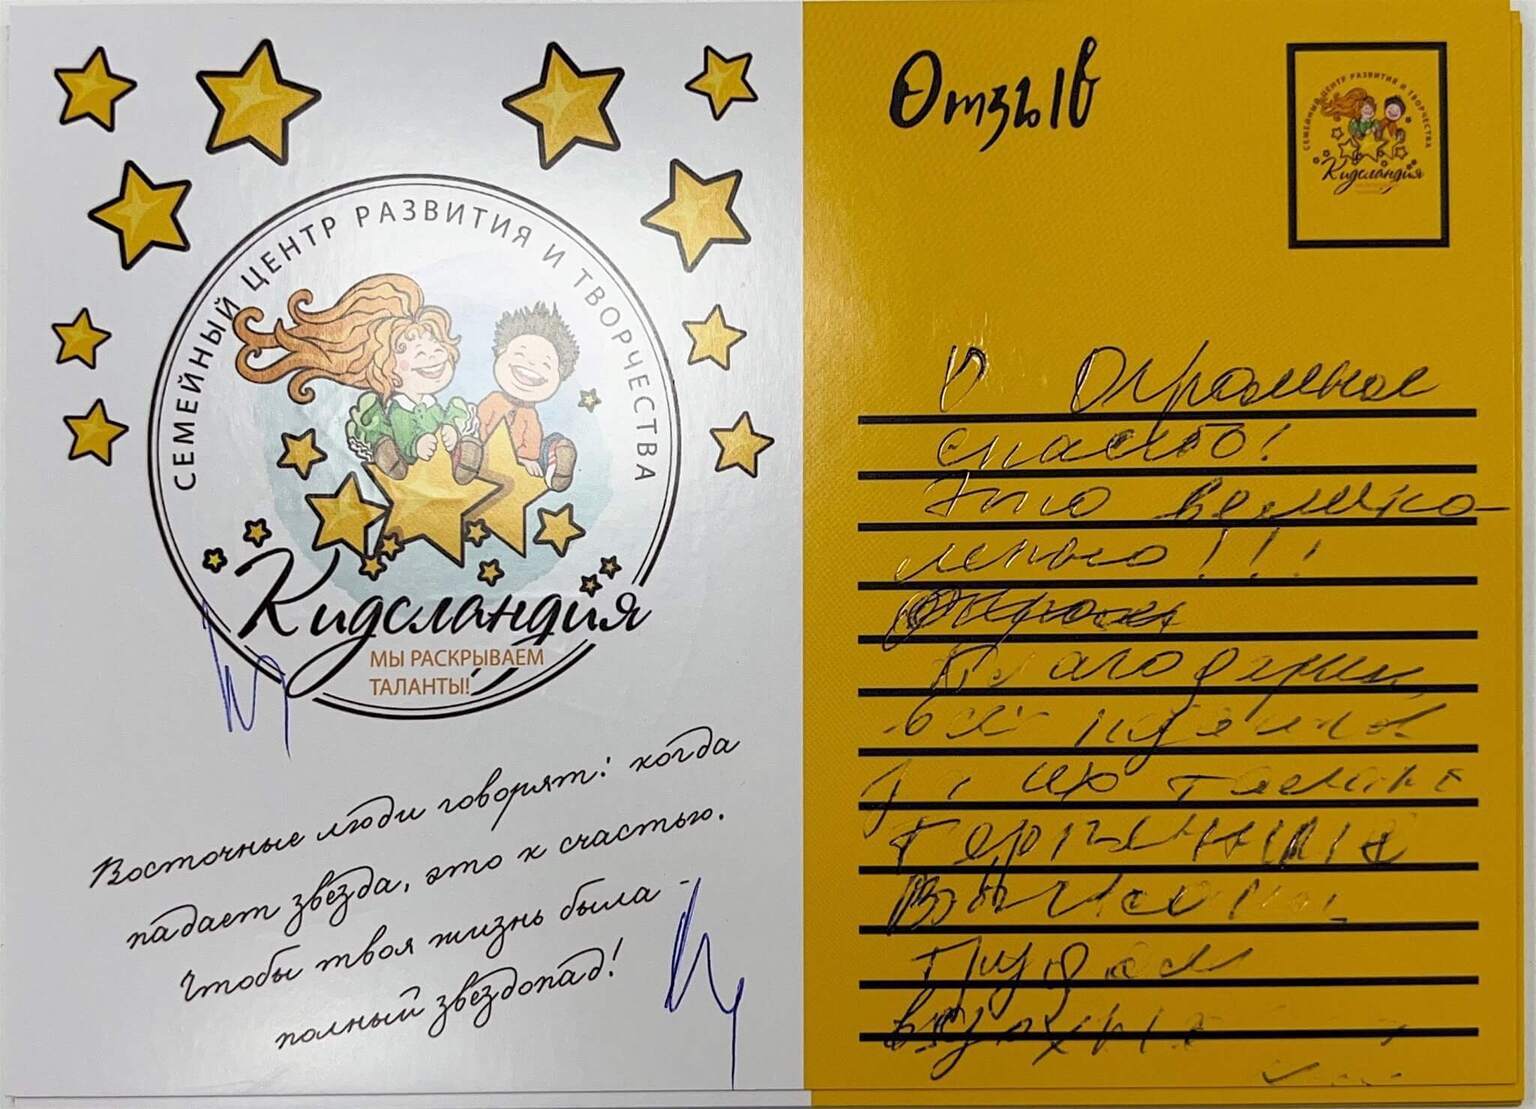 СЕМЕЙНЫЙ ЦЕНТР РАЗВИТИЯ И ТВОРЧЕСТВА
Кидсландия
МЫ РАСКРЫВАЕМ
ТАЛАНТЫ!
Восточные люди говорят: когда
падает звезда, это к счастью.
Чтобы твоя жизнь была -
полный звездопад!
Отзыв
СЕМЕЙНЫЙ ЦЕНТР РАЗВИТИЯ И ТВОРЧЕСТВА
Кидсландия
Огромное
спасибо!
Это велико-
лепно!!!
Благодарим
всех
за их талант